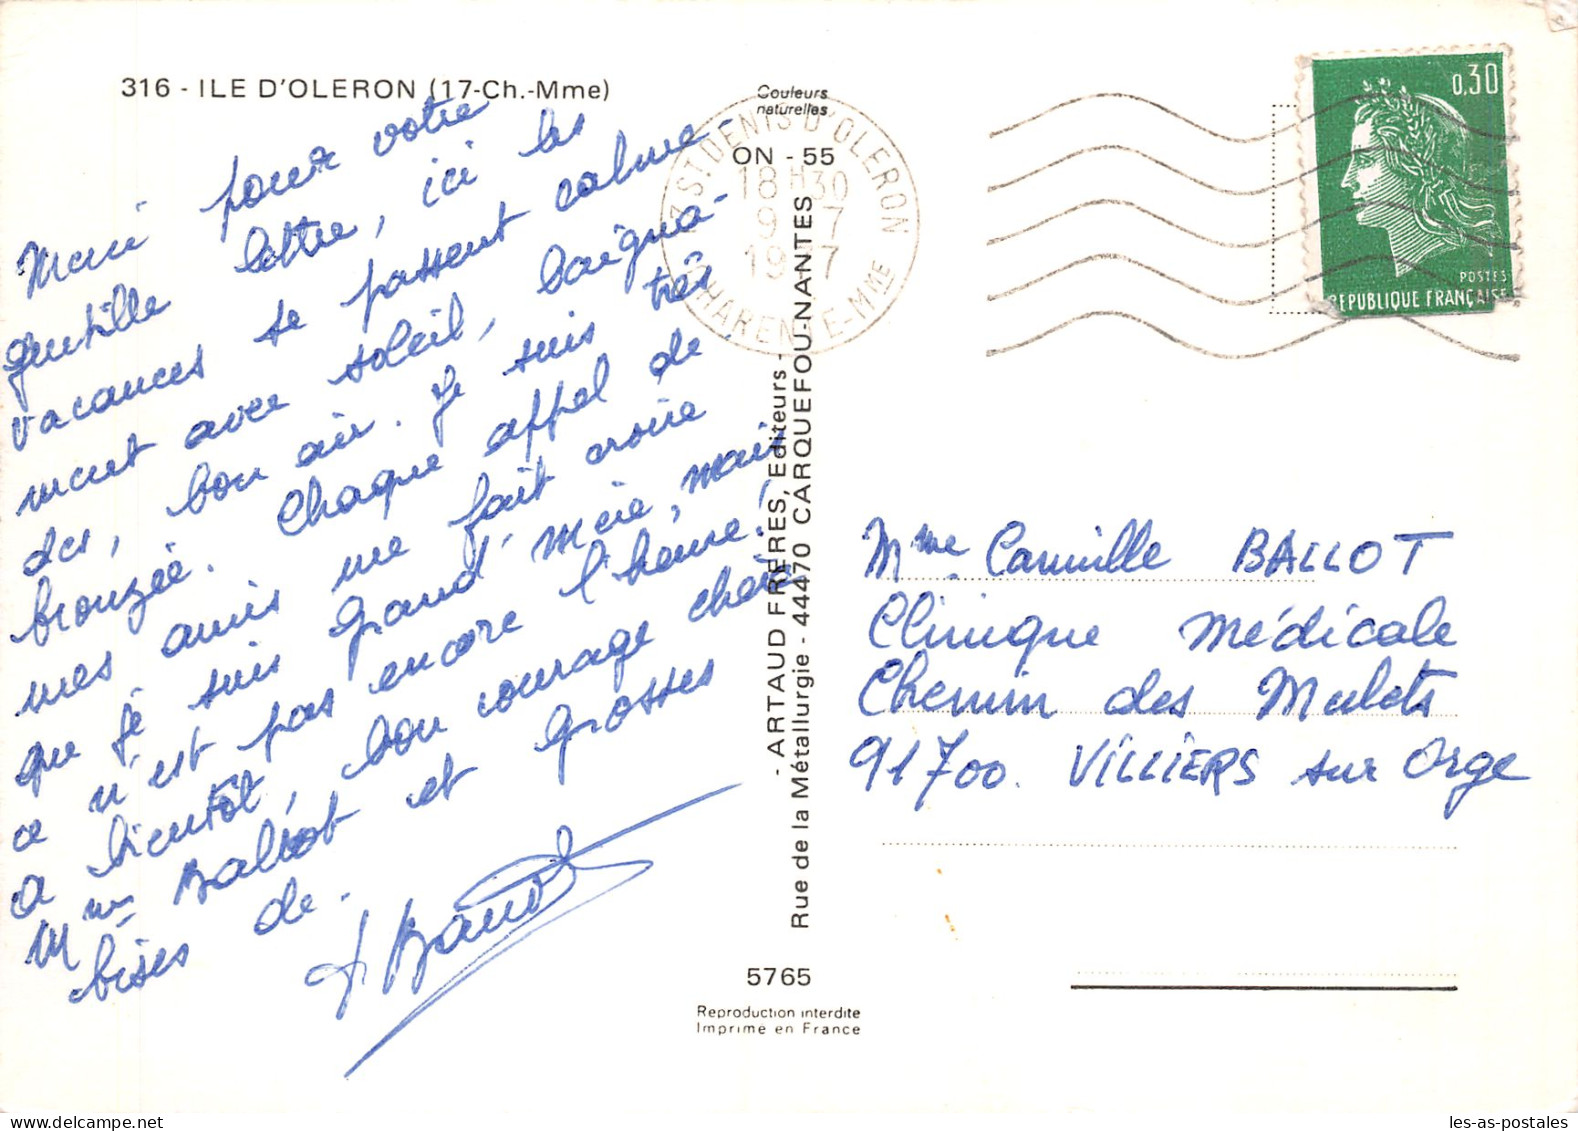 316 - ILE D'OLERON (17-Ch.-Mme)
Couleurs
naturelles
ON - 55
Merci pour votre
gentille lettre, ici les
vacances se passent calme-
ment avec soleil, baigna-
des, bon air. Je suis très
bronzée. Chaque appel de
mes amis me fait croire
que je suis grand'mère, mais
ce n'est pas encore l'heure!
A bientôt, bon courage chère
Mme Ballot et grosses
bises de.
ST DENIS D'OLERON
18H30
9 - 7
19 7
CHARENTE-Mme
0,30
POSTES
REPUBLIQUE FRANÇAISE
- ARTAUD FRERES, Editeurs -
Rue de la Métallurgie - 44470 CARQUEFOU-NANTES
Mme Camille BALLOT
Clinique Médicale
Chemin des Mulets
91700. VILLIERS sur Orge
5765
Reproduction interdite
Imprimé en France
les-as-postales